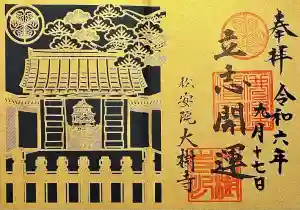 奉拝
令和六年
九月十七日
立志開運
松安院
大樹寺